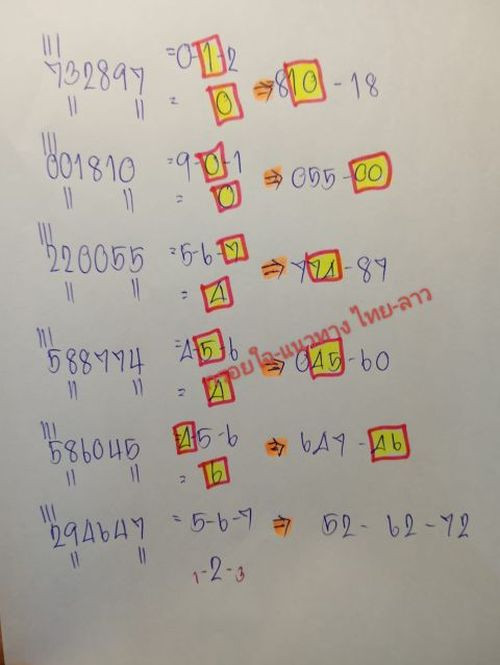 |||
732897 =0-1-2
|| || = 0 ⇒ 810-18
|||
001810 =9-0-1
|| || = 0 ⇒ 055-00
|||
220055 =5-6-7
|| || = 4 ⇒ 774-87
แนวทาง ไทย-ลาว
|||
588774 =4-5-6
|| || = 4 ⇒ 045-60
|||
586045 =4-5-6 ⇒ 647-46
|| || = 6
|||
294647 =5-6-7 ⇒ 52-62-72
|| ||
1-2-3